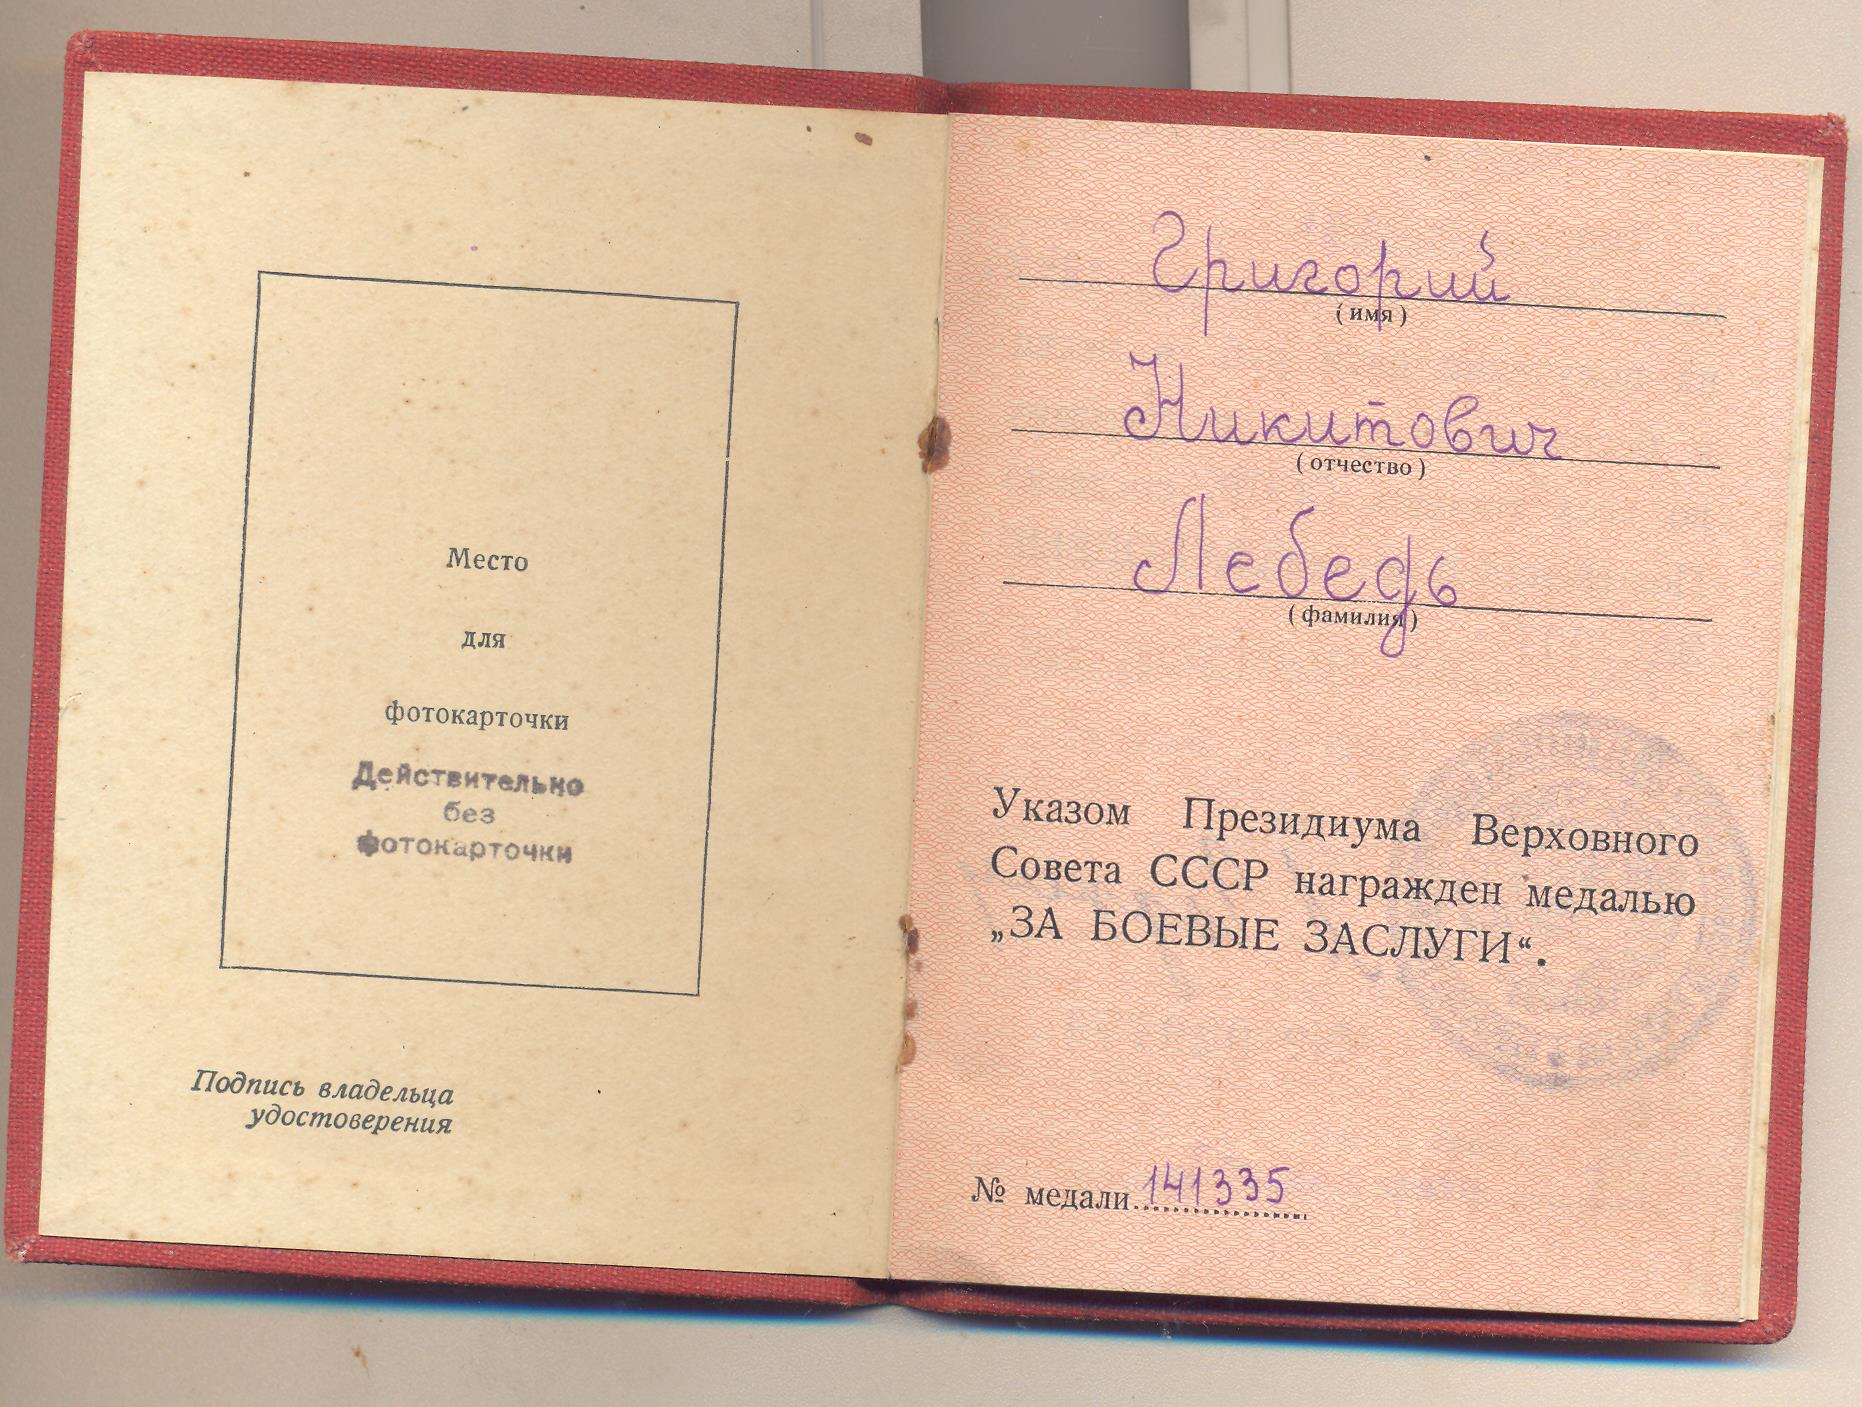 Место
для
фотокарточки
Действительно
без
фотокарточки
Подпись владельца
удостоверения
Григорий
(имя)
Никитович
(отчество)
Лебедь
(фамилия)
Указом Президиума Верховного
Совета СССР награжден медалью
„ЗА БОЕВЫЕ ЗАСЛУГИ“.
№ медали 141335